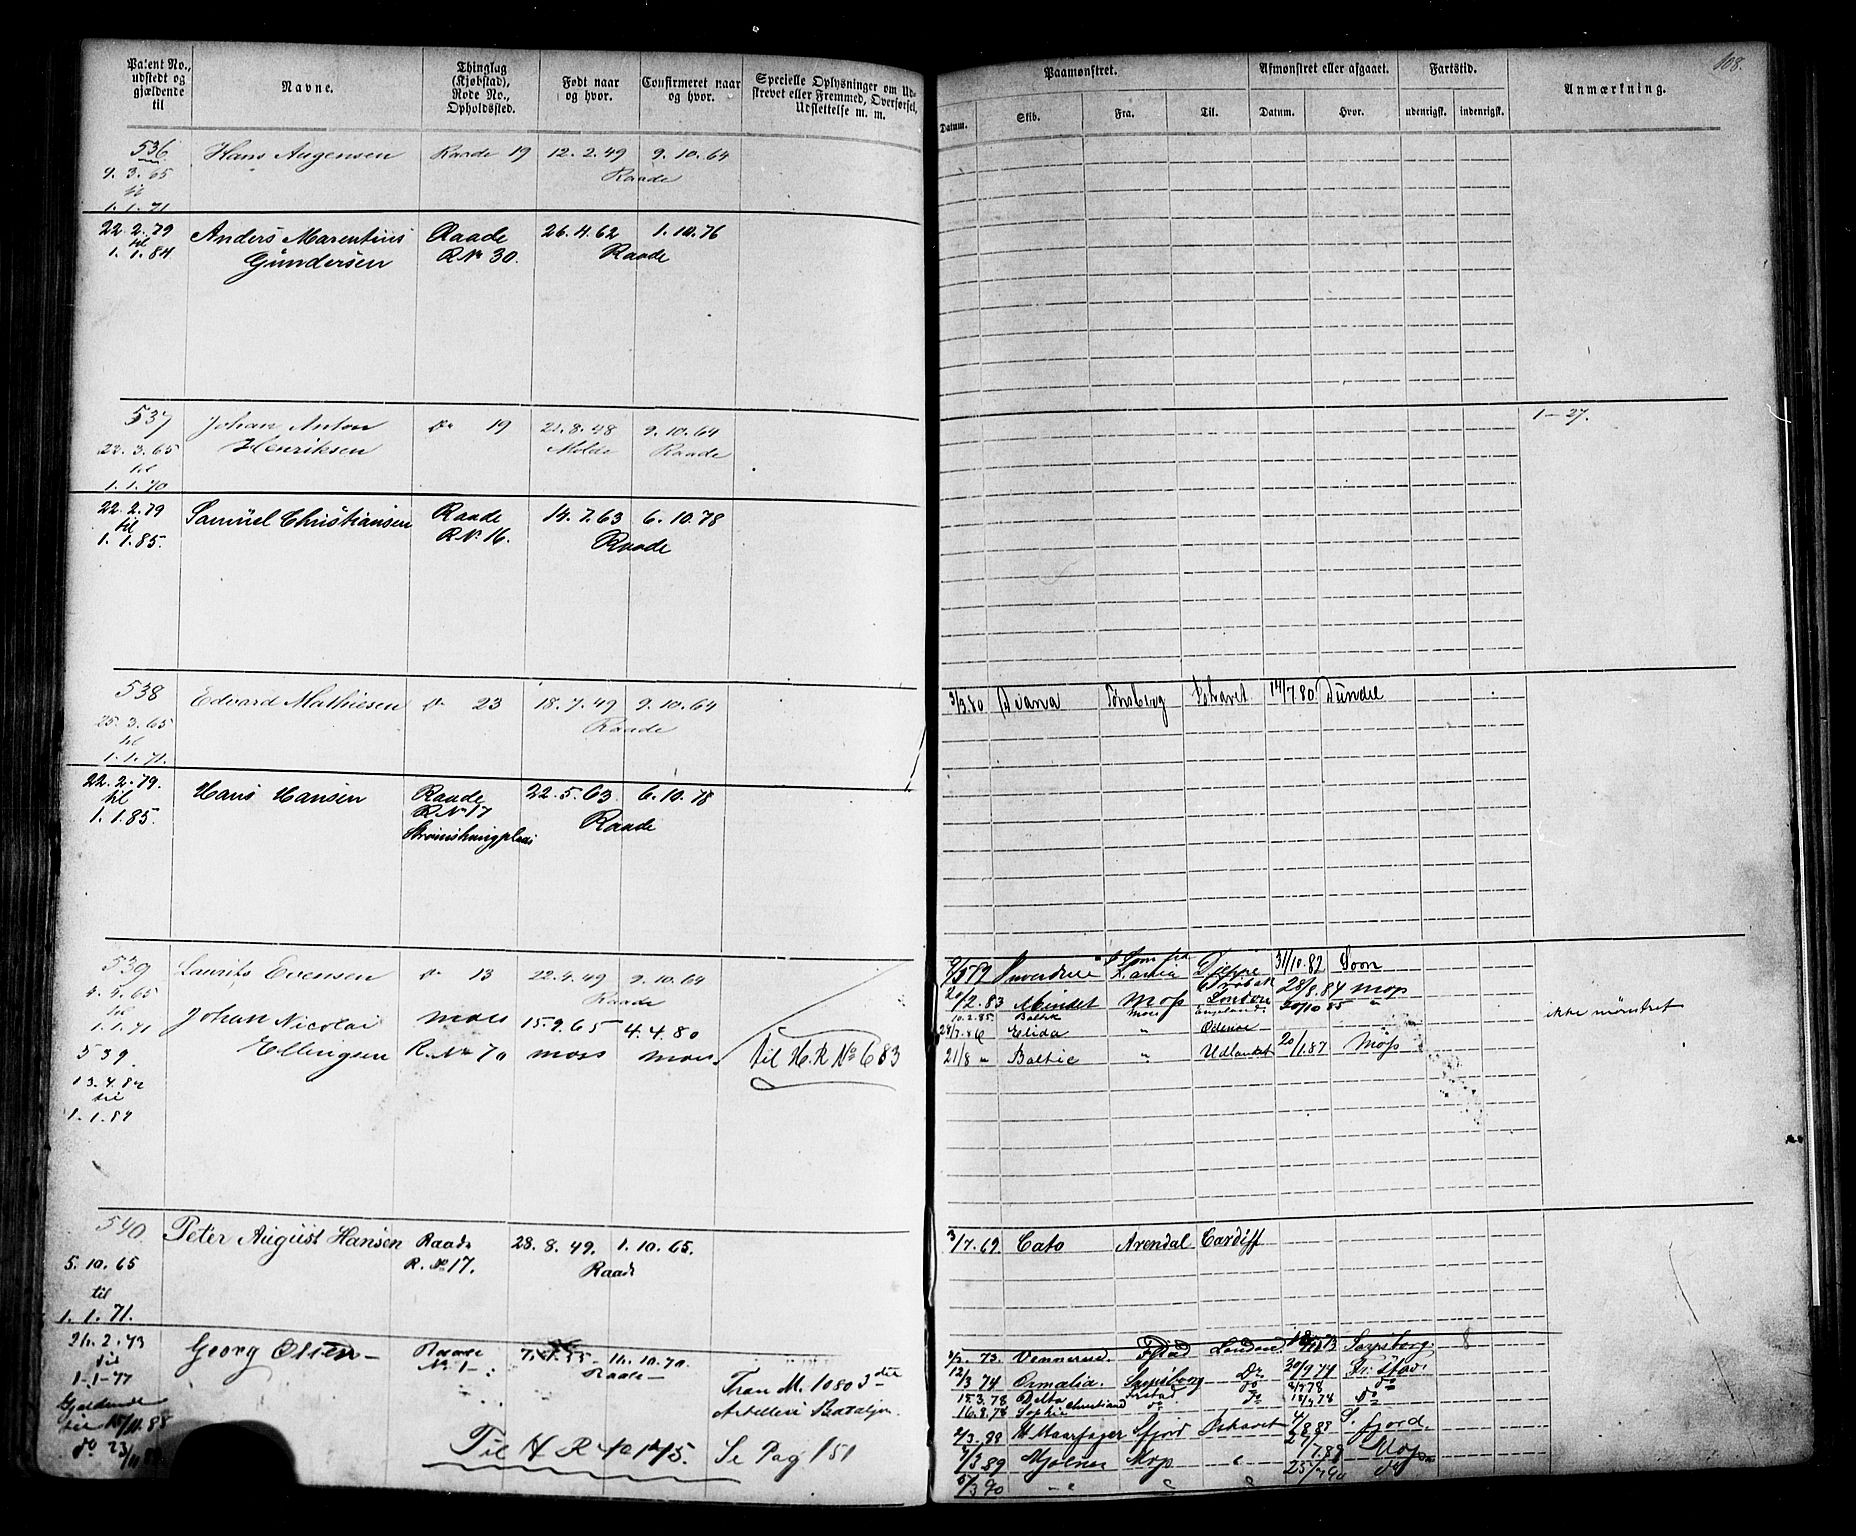 Patent No., udstedt og gjældende til
Navne.
Thinglag (Kjøbstad), Rode No., Opholdssted.
Født naar og hvor.
Confirmeret naar og hvor.
Specielle Oplysninger om Udskrevet eller Fremmed, Overførsel, Udslettelse m. m.
Paamønstret.
Afmønstret eller afgaaet.
Fartstid.
Anmærkning.
108.
Datum.
Skib.
Fra.
Til.
Datum.
Hvor.
udenrigsk.
indenrigsk.
536 Hans Augensen Raade 19 12.2.49 9.10.64
9.3.65 Raade
til
1.1.71
22.2.79 Anders Marentius Raade 26.4.62 1.10.76
til Gundersen R No 30. Raade
1.1.84
537 Johan Anton do 19 21.8.48 9.10.64 1-27.
22.3.65 Henriksen Molde Raade
til
1.1.70
22.2.79 Samuel Christiansen Raade 14.7.63 6.10.78
til R No 16. Raade
1.1.85.
538 Edvard Mathiesen do 23 18.7.49 9.10.64 3/3.80 Diana Tønsberg Ishavet 14/7 80 Dundee
25.3.65 Raade
til
1.1.71.
22.2.79. Hans Hansen Raade 22.5.63 6.10.78
til R. No 17 Raade
1.1.85.
539 Laurits Evensen do 13 22.4.49 9.10.64 Dieppe 31/10.82 Soon
4.4.65 Raade 20/2.83 Mindet Moss London 28/8.84 Moss
til 10.2.85. Baltic Moss England 20/10 85 "
1.1.71 Johan Nicolai Moss 15.9.65 4.4.80 Elida " Odense ikke mønstret
539. Ellingsen R. No 70 Moss Moss. Til H.R No 683 21/8 " Baltic " Udlandet 20/1.87 Moss
13.4.82
til
1.1.84
540. Peter August Hansen Raade 28.8.49. 1.10.65. 3/7.69 Cato Arendal Cardiff
5.10.65 R. No 17. Raade
til
1.1.71.
Georg Olsen Raade 11.10.70. 73. Vennerne. Fstad London Sarpsborg. 8
til No 1- Raade- 12/3 74 Ormalia. Sarpsborg Do 20/9 74 Fr:stad
1-1-77 Tran M. 1080 3die 15.3.78 Delta Frstad do do
Gjældende Artilleri Bataljon. 16.8.78 Sophie Christiand do do
til 15/11.88 2/3.88 H Haarfager Sfjord Ishavet S. fjord.
do 23/11 Til H R No 1275. Se Pag 151 4/3.89 Mjølner Moss " Moss
5/3 90 " " " do